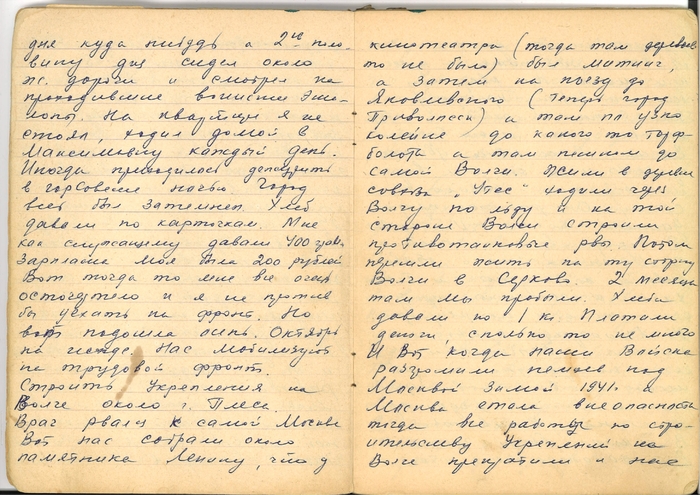 дня куда нибудь а 2ую поло-
вину дня сидел около
ж. дороги и смотрел на
проходившие воинские эше-
лоны. На квартире я не
стоял, ходил домой в
Максимовку каждый день.
Иногда приходилось дежурить
в горсовете ночью город
весь был затемнен. Хлеб
давали по карточкам. Мне
как служащему давали 400 грам.
Зарплата моя была 200 рублей
Вот тогда то мне все очень
осточертело и я не против
бы уехать на фронт. Но
вот подошла осень. Октябрь
на исходе. Нас мобилизуют
на трудовой фронт.
Строить укрепления на
Волге около г. Плеса.
Враг рвался к самой Москве
Вот нас собрали около
памятника Ленину, что у
кинотеатра (тогда там
то не было) был митинг,
а затем на поезд до
Яковлевского (теперь город
Приволжск) а там по узко
колейке до какого то торф-
болота а там пешком до
самой Волги. Жили в деревне
совхоза "Утес" ходили через
Волгу по льду и на той
стороне Волги строили
противотанковые рвы. Потом
перешли жить на ту сторону
Волги в Серково. 2 месяца
там мы пробыли. Хлеба
давали по 1 кг Платили
деньги, сколько то не много
И вот когда наши Войска
разгромили немцев под
Москвой Зимой 1941г. а
Москва стала вне опасности
тогда все работы по стро-
ительству укреплений на
Волге прекратили и нас